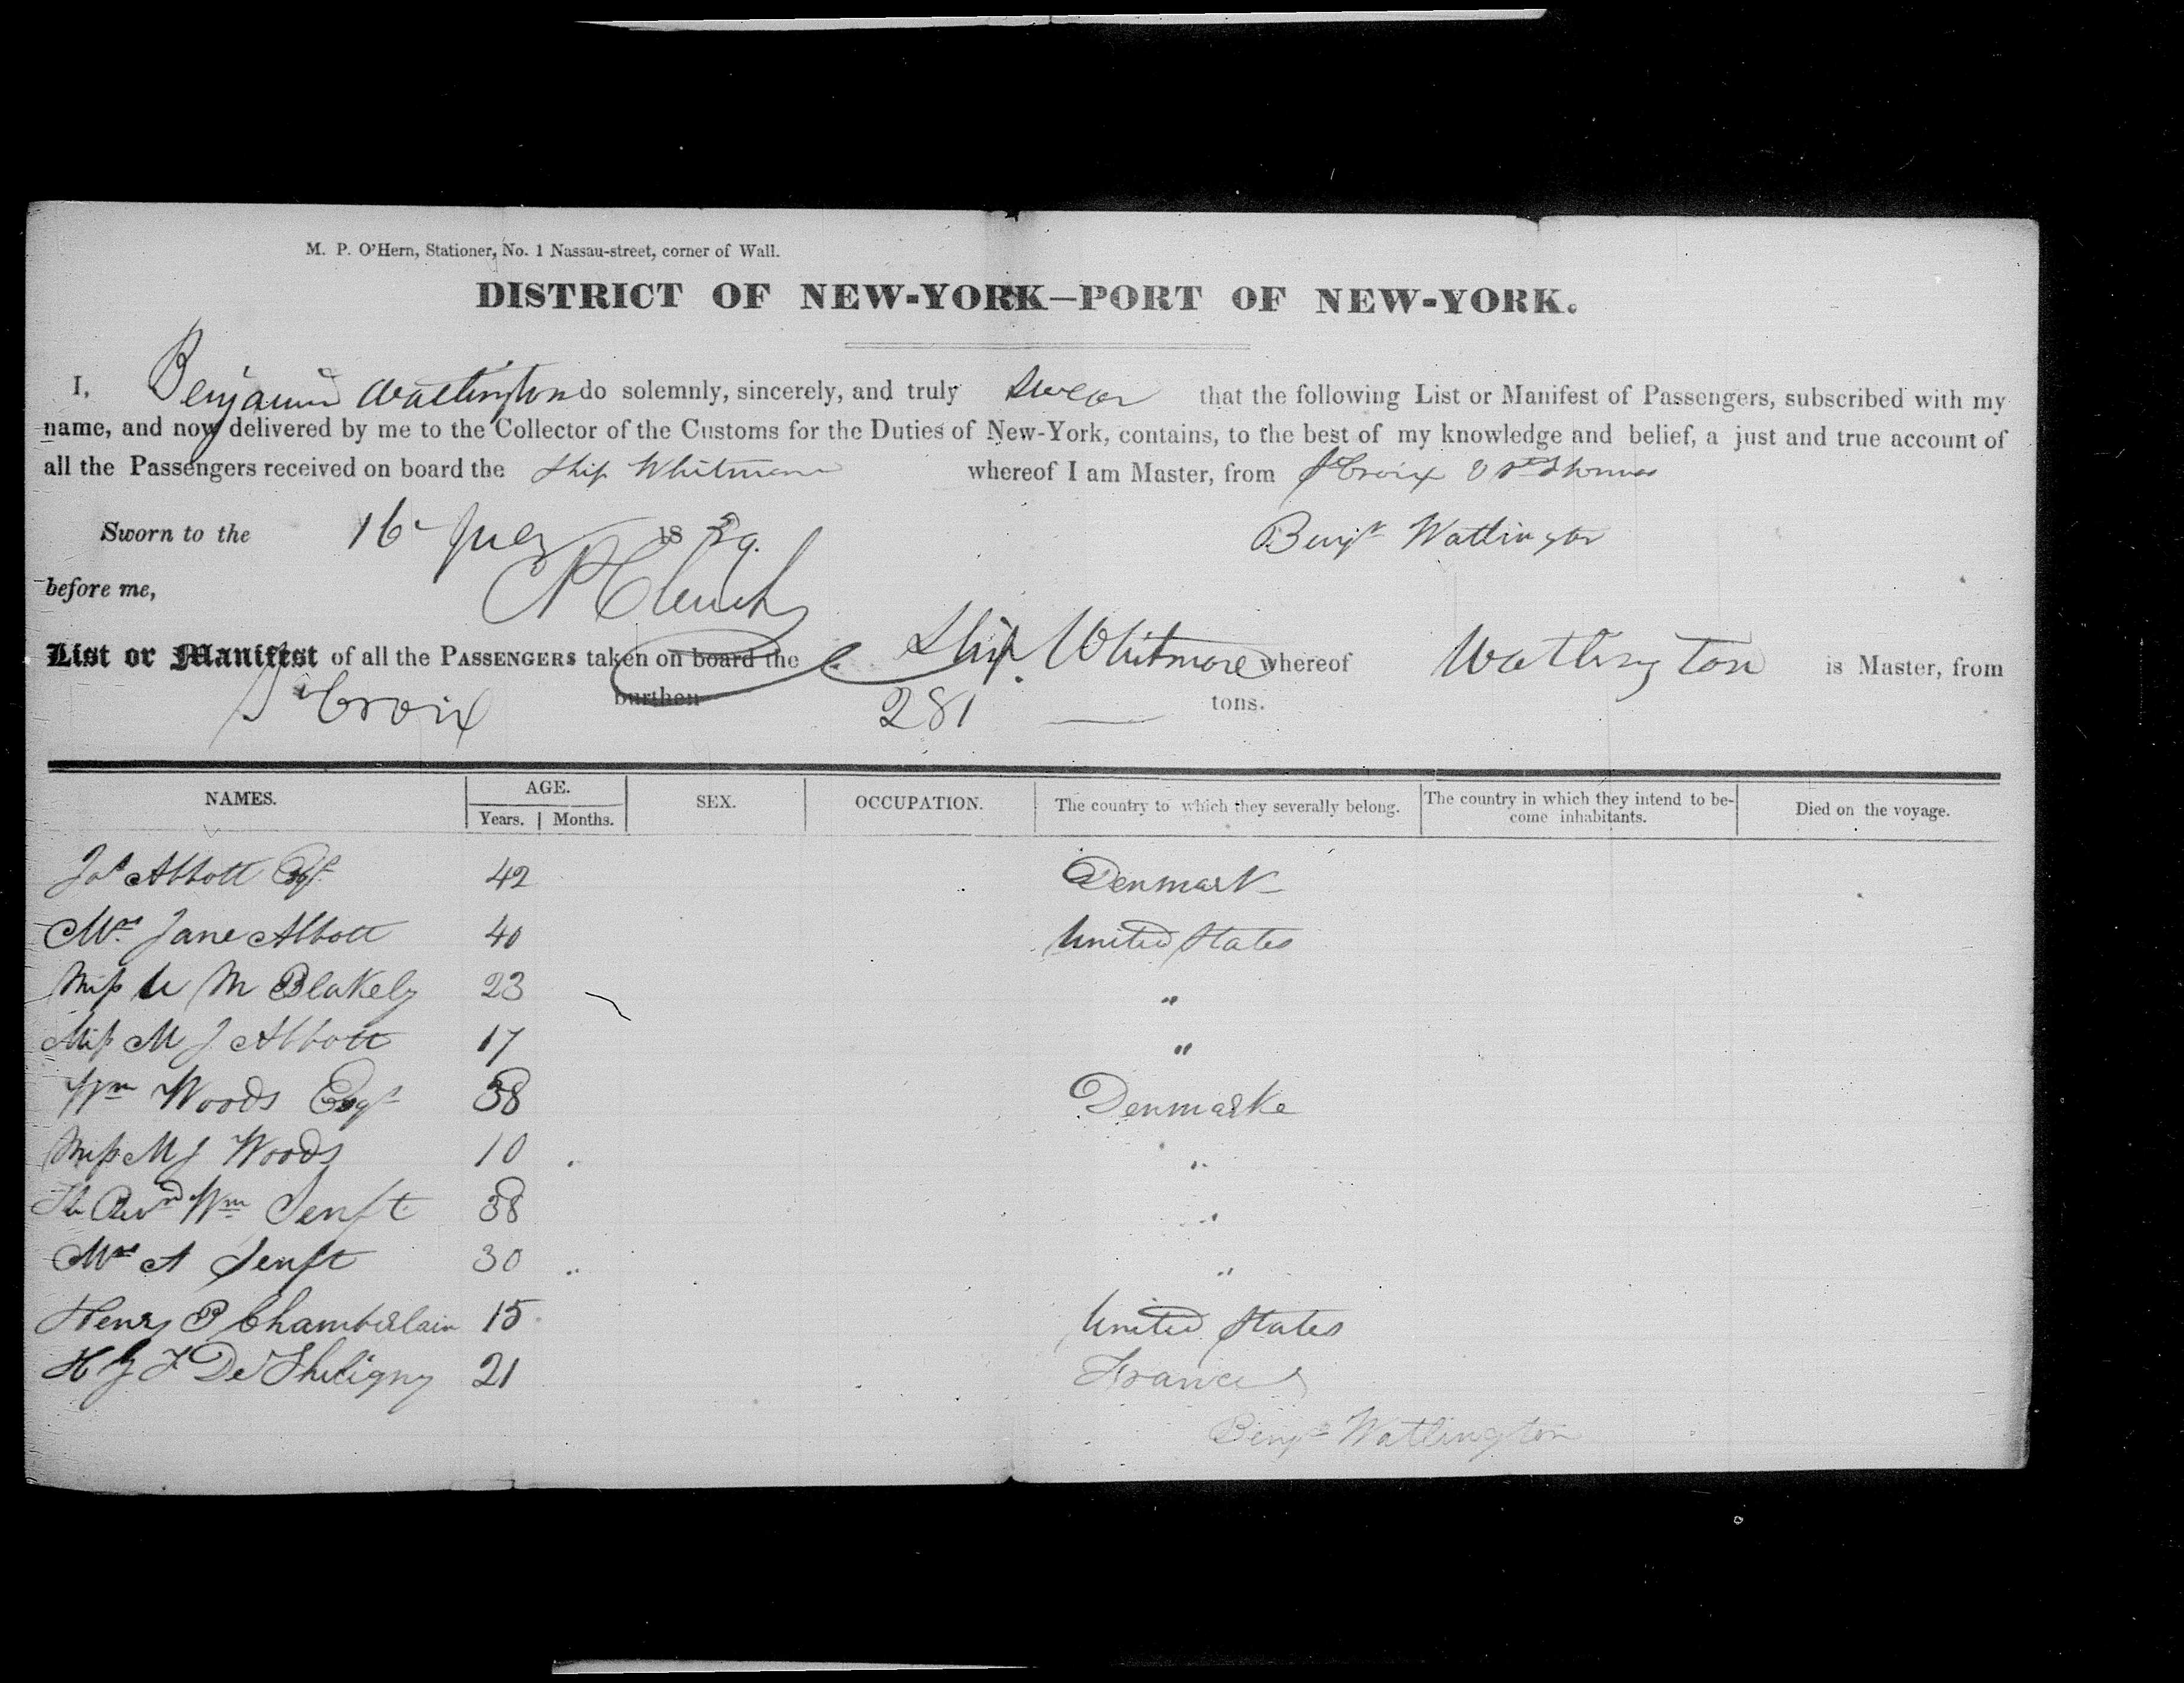 M. P. O'Hern, Stationer, No. 1 Nassau-street, corner of Wall.
DISTRICT OF NEW-YORK—PORT OF NEW-YORK.
I, Benjamin Watlington do solemnly, sincerely, and truly swear that the following List or Manifest of Passengers, subscribed with my
name, and now delivered by me to the Collector of the Customs for the Duties of New-York, contains, to the best of my knowledge and belief, a just and true account of
all the Passengers received on board the Ship Whitmore whereof I am Master, from St Croix & St Thomas
Sworn to the 16 July 1839. Benjn Watlington
before me,
List or Manifest of all the PASSENGERS taken on board the Ship Whitmore whereof Watlington is Master, from
St Croix burthen 281 tons.
NAMES. AGE. SEX. OCCUPATION. The country to which they severally belong. The country in which they intend to be-come inhabitants. Died on the voyage.
Years. Months.
Jos Abbott Esqr 42 Denmark
Mrs Jane Abbott 40 United States
Miss U M Blakely 23 "
Miss M J Abbott 17 "
Wm Woods Esqr 38 Denmarke
Miss M J Woods 10 "
The Revd Wm Senft 38 "
Mrs A Senft 30 "
Henry P Chamberlain 15 United States
H J F De 21 France
Benjn Watlington